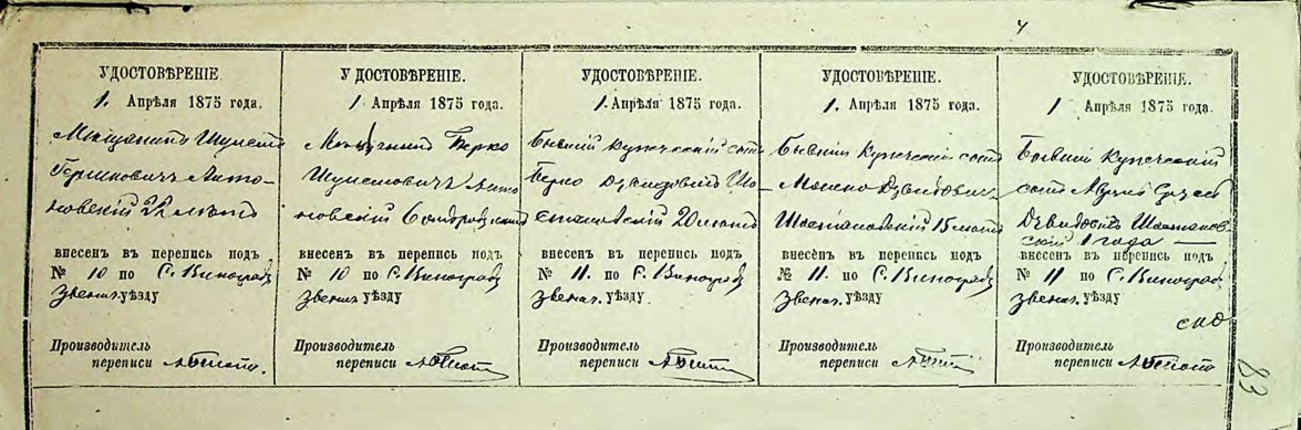 4
УДОСТОВѢРЕНІЕ.
1. Апрѣля 1875 года.
Мѣщанинъ
Гершковичъ Анто-
новскій 22 лѣтъ
внесенъ въ перепись подъ
№ 10 по С. Виноградъ
Звениг. уѣзду
Производитель
переписи
УДОСТОВѢРЕНІЕ.
1 Апрѣля 1875 года.
Мѣщанинъ Берко
Анто
новскій
внесенъ въ перепись подъ
№ 10 по С. Виноградъ
Звениг. уѣзду
Производитель
переписи
УДОСТОВѢРЕНІЕ.
1. Апрѣля 1875 года.
Бывшій купеческій сынъ
Берко Дувидовичъ
20 лѣтъ
внесенъ въ перепись подъ
№ 11. по С. Виноградъ
Звениг. уѣзду
Производитель
переписи
УДОСТОВѢРЕНІЕ.
1. Апрѣля 1875 года.
Бывшій Купеческій сынъ
Мошко Дувидович
15 лѣтъ
внесенъ въ перепись подъ
№ 11. по С. Виноградъ
Звениг. уѣзду
Производитель
переписи
УДОСТОВѢРЕНІЕ.
1 Апрѣля 1875 года.
Бывшій Купеческій
сынъ
Дувидовичъ
скій 1 года
внесенъ въ перепись подъ
№ 11 по С. Виноград
Звениг. уѣзду
Производитель
переписи
83